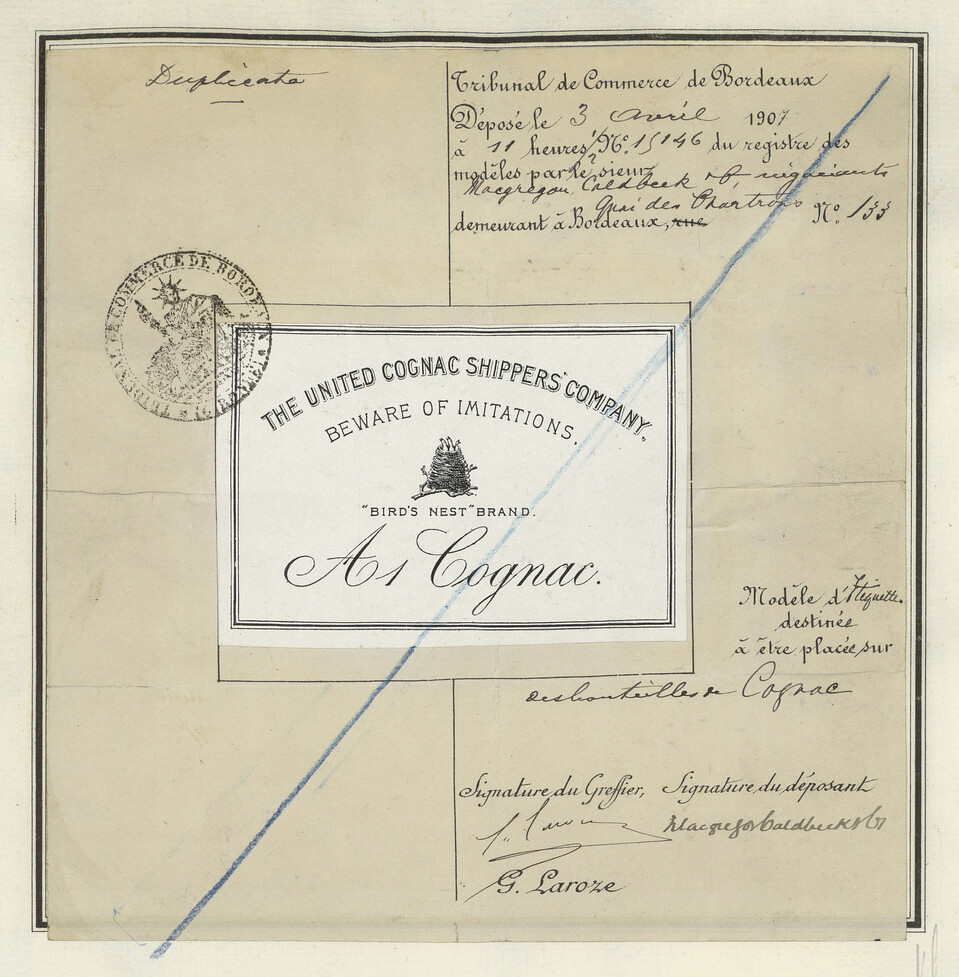 Duplicata
Tribunal de Commerce de Bordeaux
Déposé le 3 avril 1907
à 11 heures, No. 15146 du registre des
modèles par le sieur
Macgregor, Caldbeck négociants
Quai des Chartrons
demeurant à Bordeaux, rue No. 133
TRIBUNAL DE COMMERCE DE BORDEAUX
THE UNITED COGNAC SHIPPERS' COMPANY.
BEWARE OF IMITATIONS.
"BIRD'S NEST" BRAND.
A1 Cognac.
Modèle d'Etiquette
destinée
à être placée sur
des bouteilles de Cognac
Signature du Greffier, Signature du déposant
Macgregor Caldbeck & Co
G. Laroze